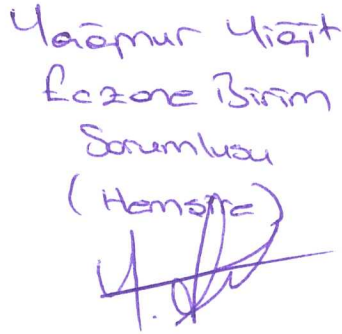 Yağmur Yiğit
Eczane Birim
Sorumlusu
(Hemşire)